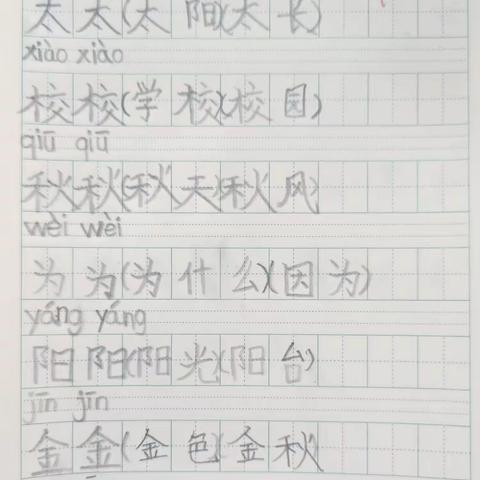 太太(太阳)(太长)
xiào xiào
校校(学校)(校园)
qiū qiū
秋秋(秋天)(秋风)
wèi wèi
为为(为什么)(因为)
yáng yáng
阳阳(阳光)(阳台)
jīn jīn
金金(金色)(金秋)